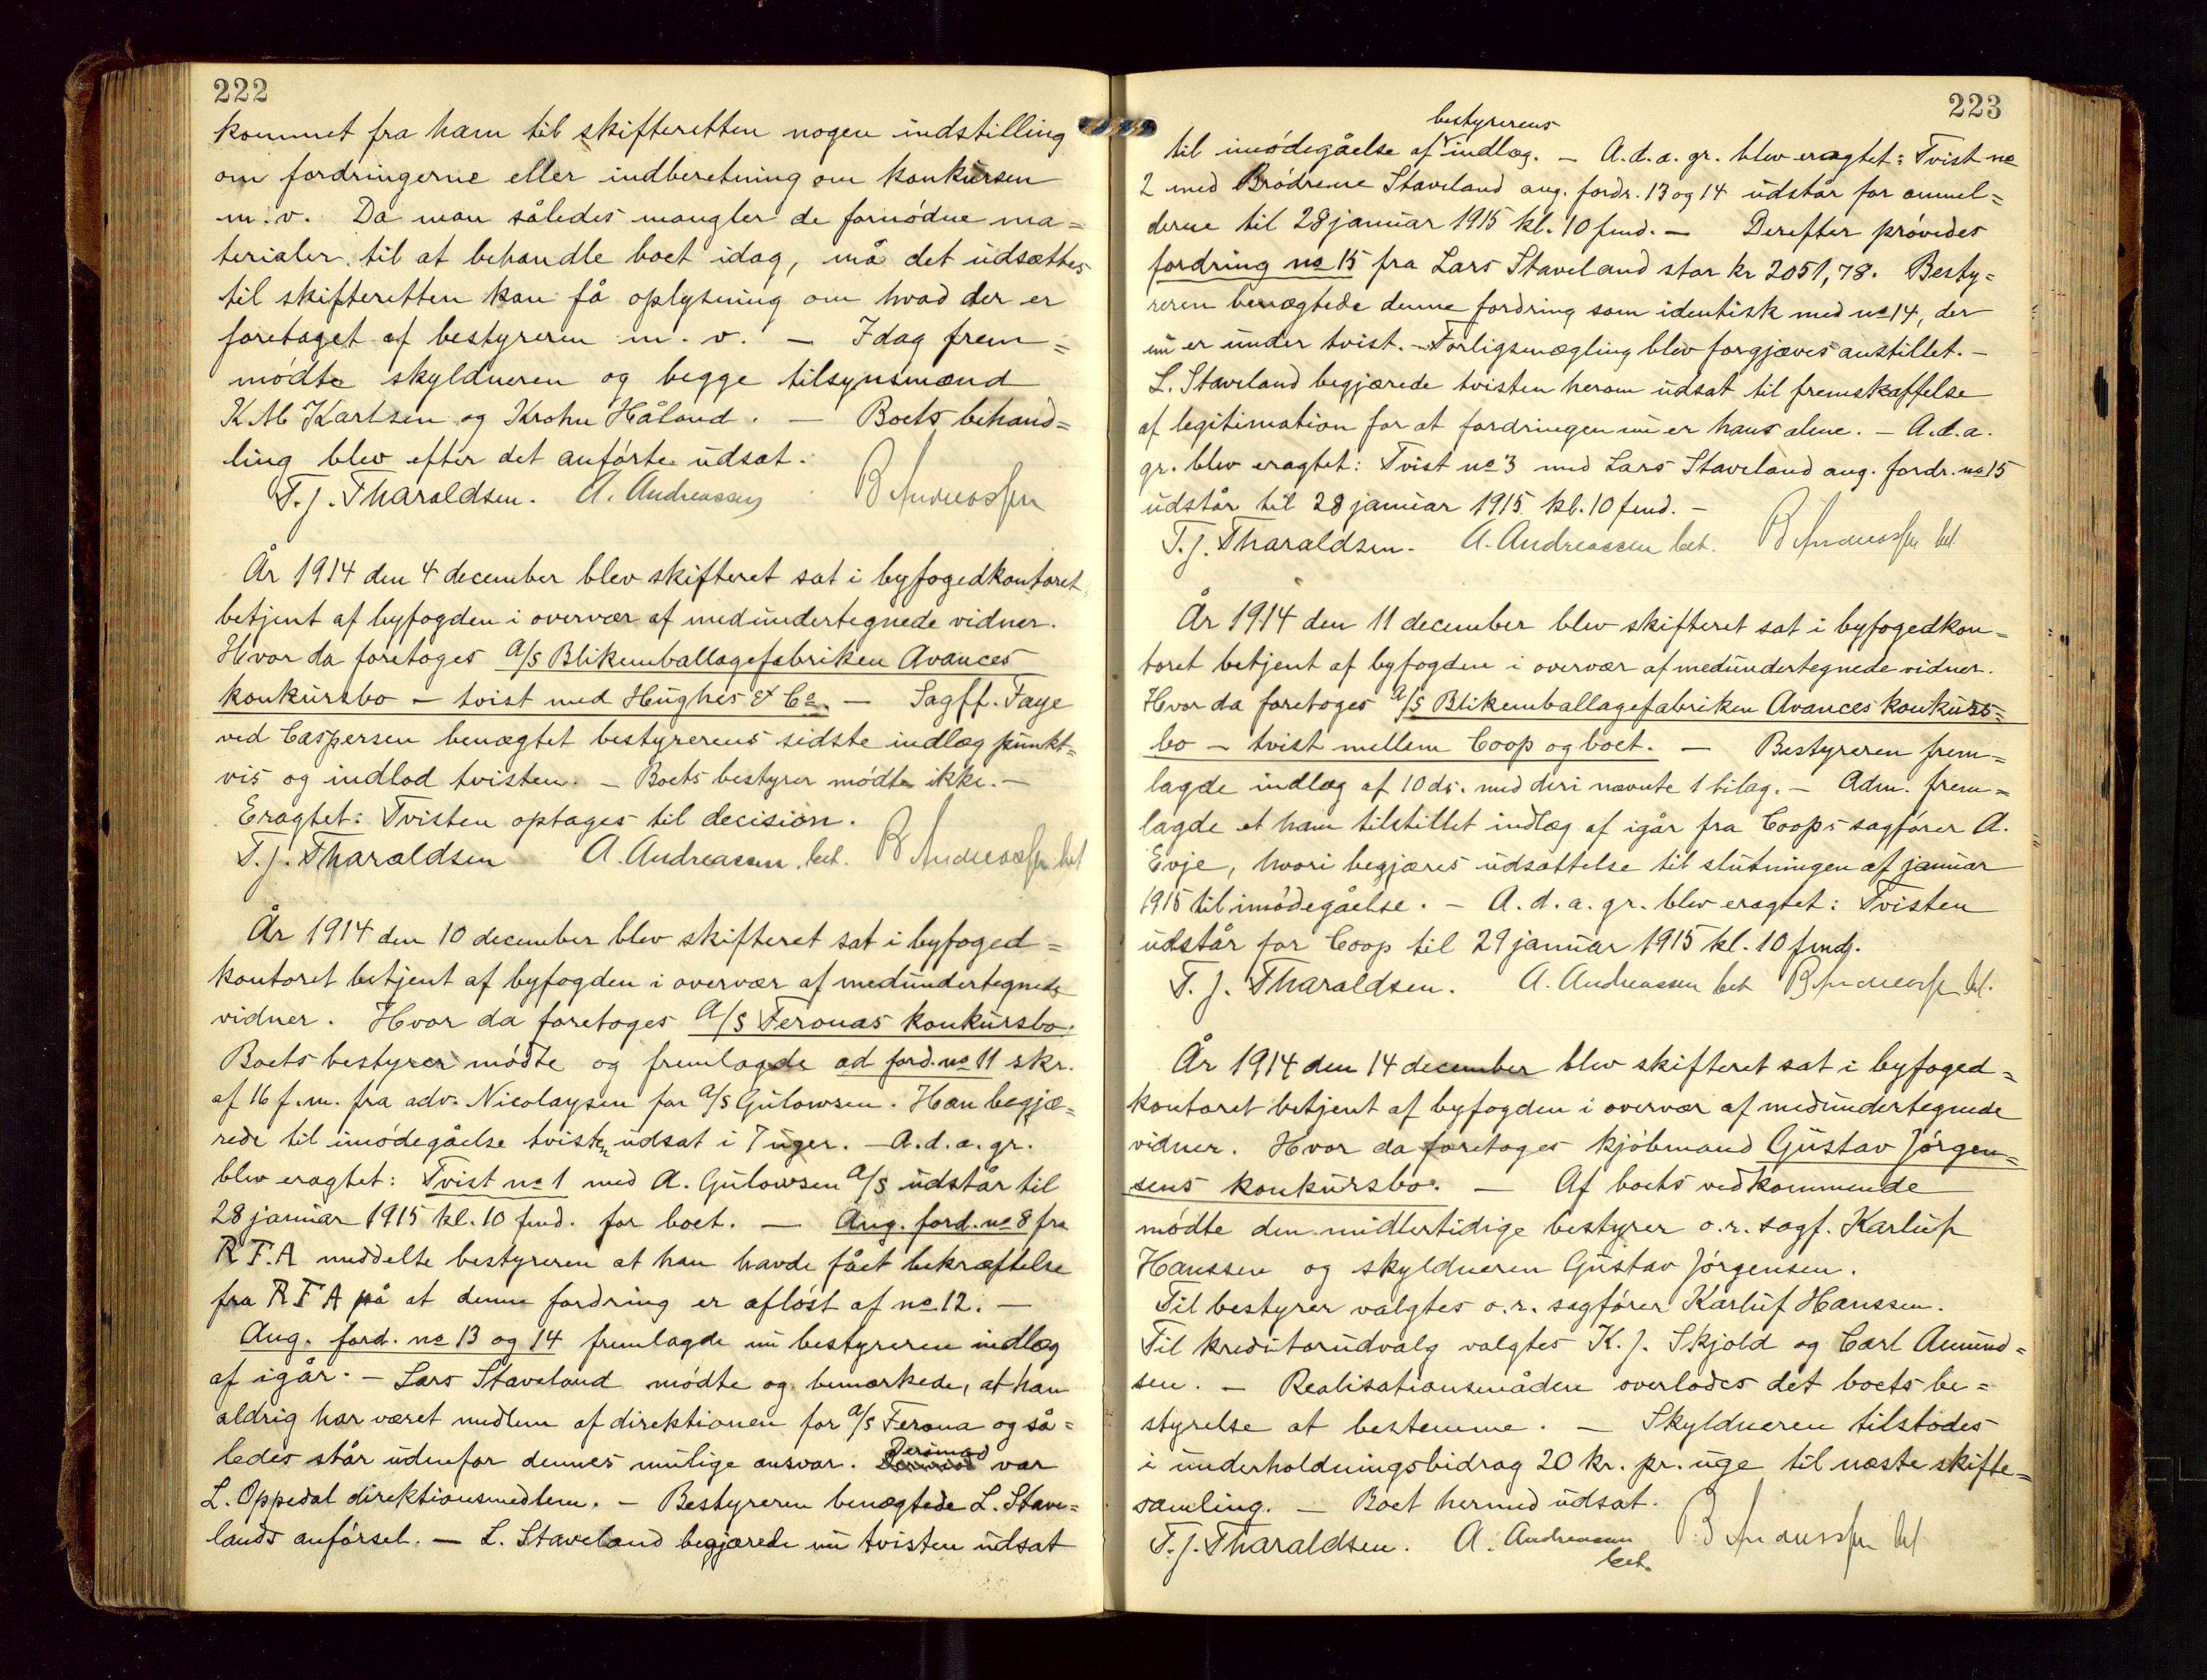 222
kommet fra ham til skifteretten nogen indstilling
om fordringerne eller indberetning om konkursen
m. v. Da man således mangler de fornødne ma=
terialer til at behandle boet idag, må det udsættes
til skifteretten kan få oplysning om hvad der er
foretaget af bestyreren m. v. — Idag frem=
mødte skyldneren og begge tilsynsmænd
K M Karlsen og Krohn Håland. — Boets behand=
ling blev efter det anførte udsat.
T. J. Tharaldsen. A. Andreassen B Andreassen
År 1914 den 4 december blev skifteret sat i byfogedkontoret
betjent af byfogden i overvær af medundertegnede vidner.
Hvor da foretoges a/s Blikemballagefabriken Avances
konkursbo – tvist med Hughes & Co. — Sagff. Faye
ved Caspersen benægtet bestyrerens sidste indlæg punkt=
vis og indlod tvisten. – Boets bestyrer mødte ikke. –
Eragtet: Tvisten optages til decision.
T. J. Tharaldsen A. Andreassen bet. B Andreassen bet
År 1914 den 10 december blev skifteret sat i byfoged=
kontoret betjent af byfogden i overvær af medundertegnede
vidner. Hvor da foretoges A/S Feronas konkursbo.
Boets bestyrer mødte og fremlagde ad ford. no 11 skr.
af 16 f. m. fra adv. Nicolaysen for a/s Gulowsen. Han begjæ=
rede til imødegåelse tvisten udsat i 7 uger. – A. d. a. gr.
blev eragtet: Tvist no 1 med A. Gulowsen A/S udstår til
28 januar 1915 kl. 10 fmd. for boet. — Ang. ford. no 8 fra
R F. A meddelte bestyreren at han havde fået bekræftelse
fra R F A på at denne fordring er afløst af no 12. —
Ang. ford. no 13 og 14 fremlagde nu bestyreren indlæg
af igår. – Lars Staveland mødte og bemærkede, at han
aldrig har været medlem af direktionen for a/s Ferona og så=
ledes står udenfor dennes mulige ansvar. Derimod var
L. Oppedal direktionsmedlem. – Bestyreren benægtede L. Stave=
lands anførsel. — L. Staveland begjærede nu tvisten udsat
223
bestyrerens
til imødegåelse af indlæg. – A. d. a. gr. blev eragtet: Tvist no
2 med Brødrene Staveland ang. fordr. 13 og 14 udstår for anmel=
derne til 28 januar 1915 kl. 10 fmd. — Derefter prøvedes
fordring no 15 fra Lars Staveland stor kr 2051,78. Besty=
reren benægtede denne fordring som identisk med no 14, der
nu er under tvist. – Forligsmægling blev forgjæves anstillet. –
L. Staveland begjærede tvisten herom udsat til fremskaffelse
af legitimation for at fordringen nu er hans alene. – A. d. a.
gr. blev eragtet: Tvist no 3 med Lars Staveland ang. fordr. no 15
udstår til 28 januar 1915 kl. 10 fmd. –
T. J. Tharaldsen. A. Andreassen bet. B Andreassen bet.
År 1914 den 11 december blev skifteret sat i byfogedkon=
toret betjent af byfogden i overvær af medundertegnede vidner.
Hvor da foretoges A/S Blikemballagefabriken Avances konkurs=
bo – tvist mellem Coop og boet. — Bestyreren frem=
lagde indlæg af 10 ds. med deri nævnte 1 bilag. – Adm. frem=
lagde et ham tilstillet indlæg af igår fra Coops sagfører A.
Evje, hvori begjæres udsættelse til slutningen af januar
1915 til imødegåelse. – A. d. a. gr. blev eragtet: Tvisten
udstår for Coop til 29 januar 1915 kl. 10 fmd.
T. J. Tharaldsen. A. Andreassen bet B Andreassen bet.
År 1914 den 14 december blev skifteret sat i byfoged=
kontoret betjent af byfogden i overvær af medundertegnede
vidner. Hvor da foretoges kjøbmand Gustav Jørgen=
sens konkursbo. — Af boets vedkommende
mødte den midlertidige bestyrer o. r. sagf. Karluf
Hanssen og skyldneren Gustav Jørgensen.
Til bestyrer valgtes o. r. sagfører Karluf Hanssen.
Til kreditorudvalg valgtes K. J. Skjold og Carl Amund=
sen. – Realisationsmåden overlodes det boets be=
styrelse at bestemme. – Skyldneren tilstodes
i underholdningsbidrag 20 kr. pr. uge til næste skifte=
samling. – Boet hermed udsat.
T. J. Tharaldsen. A. Andreassen B Andreassen bet
bet.